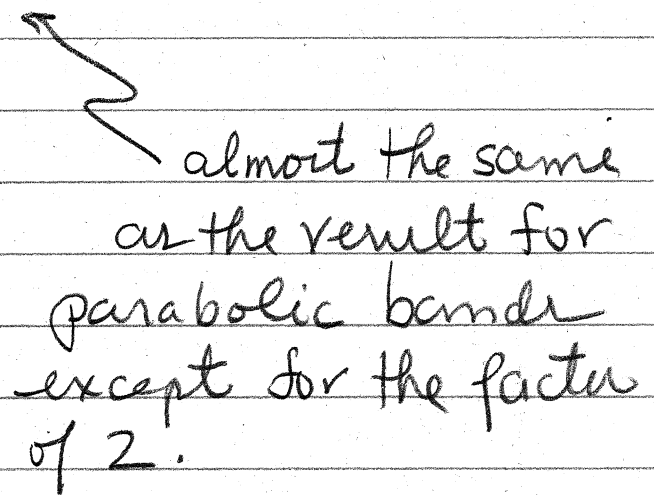 almost the same
as the result for
parabolic bands
except for the factor
of 2.